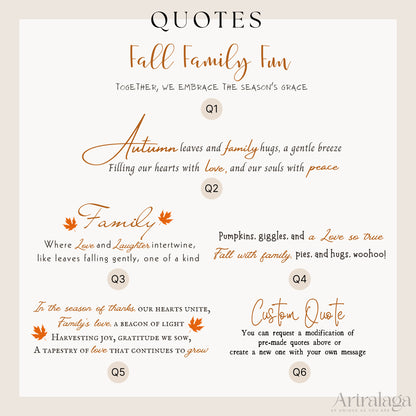 QUOTES
Fall Family Fun
TOGETHER, WE EMBRACE THE SEASON'S GRACE
Q1
Autumn leaves and family hugs, a gentle breeze
Filling our hearts with love, and our souls with peace
Q2
Family
Where Love and Laughter intertwine,
like leaves falling gently, one of a kind
Q3
Pumpkins, giggles, and a Love so true
Fall with family, pies, and hugs, woohoo!
Q4
In the season of thanks, our hearts unite,
Family's love, a beacon of light
Harvesting joy, gratitude we sow,
A tapestry of love that continues to grow
Q5
Custom Quote
You can request a modification of
pre-made quotes above or
create a new one with your own message
Q6
Artralaga
AS UNIQUE AS YOU ARE